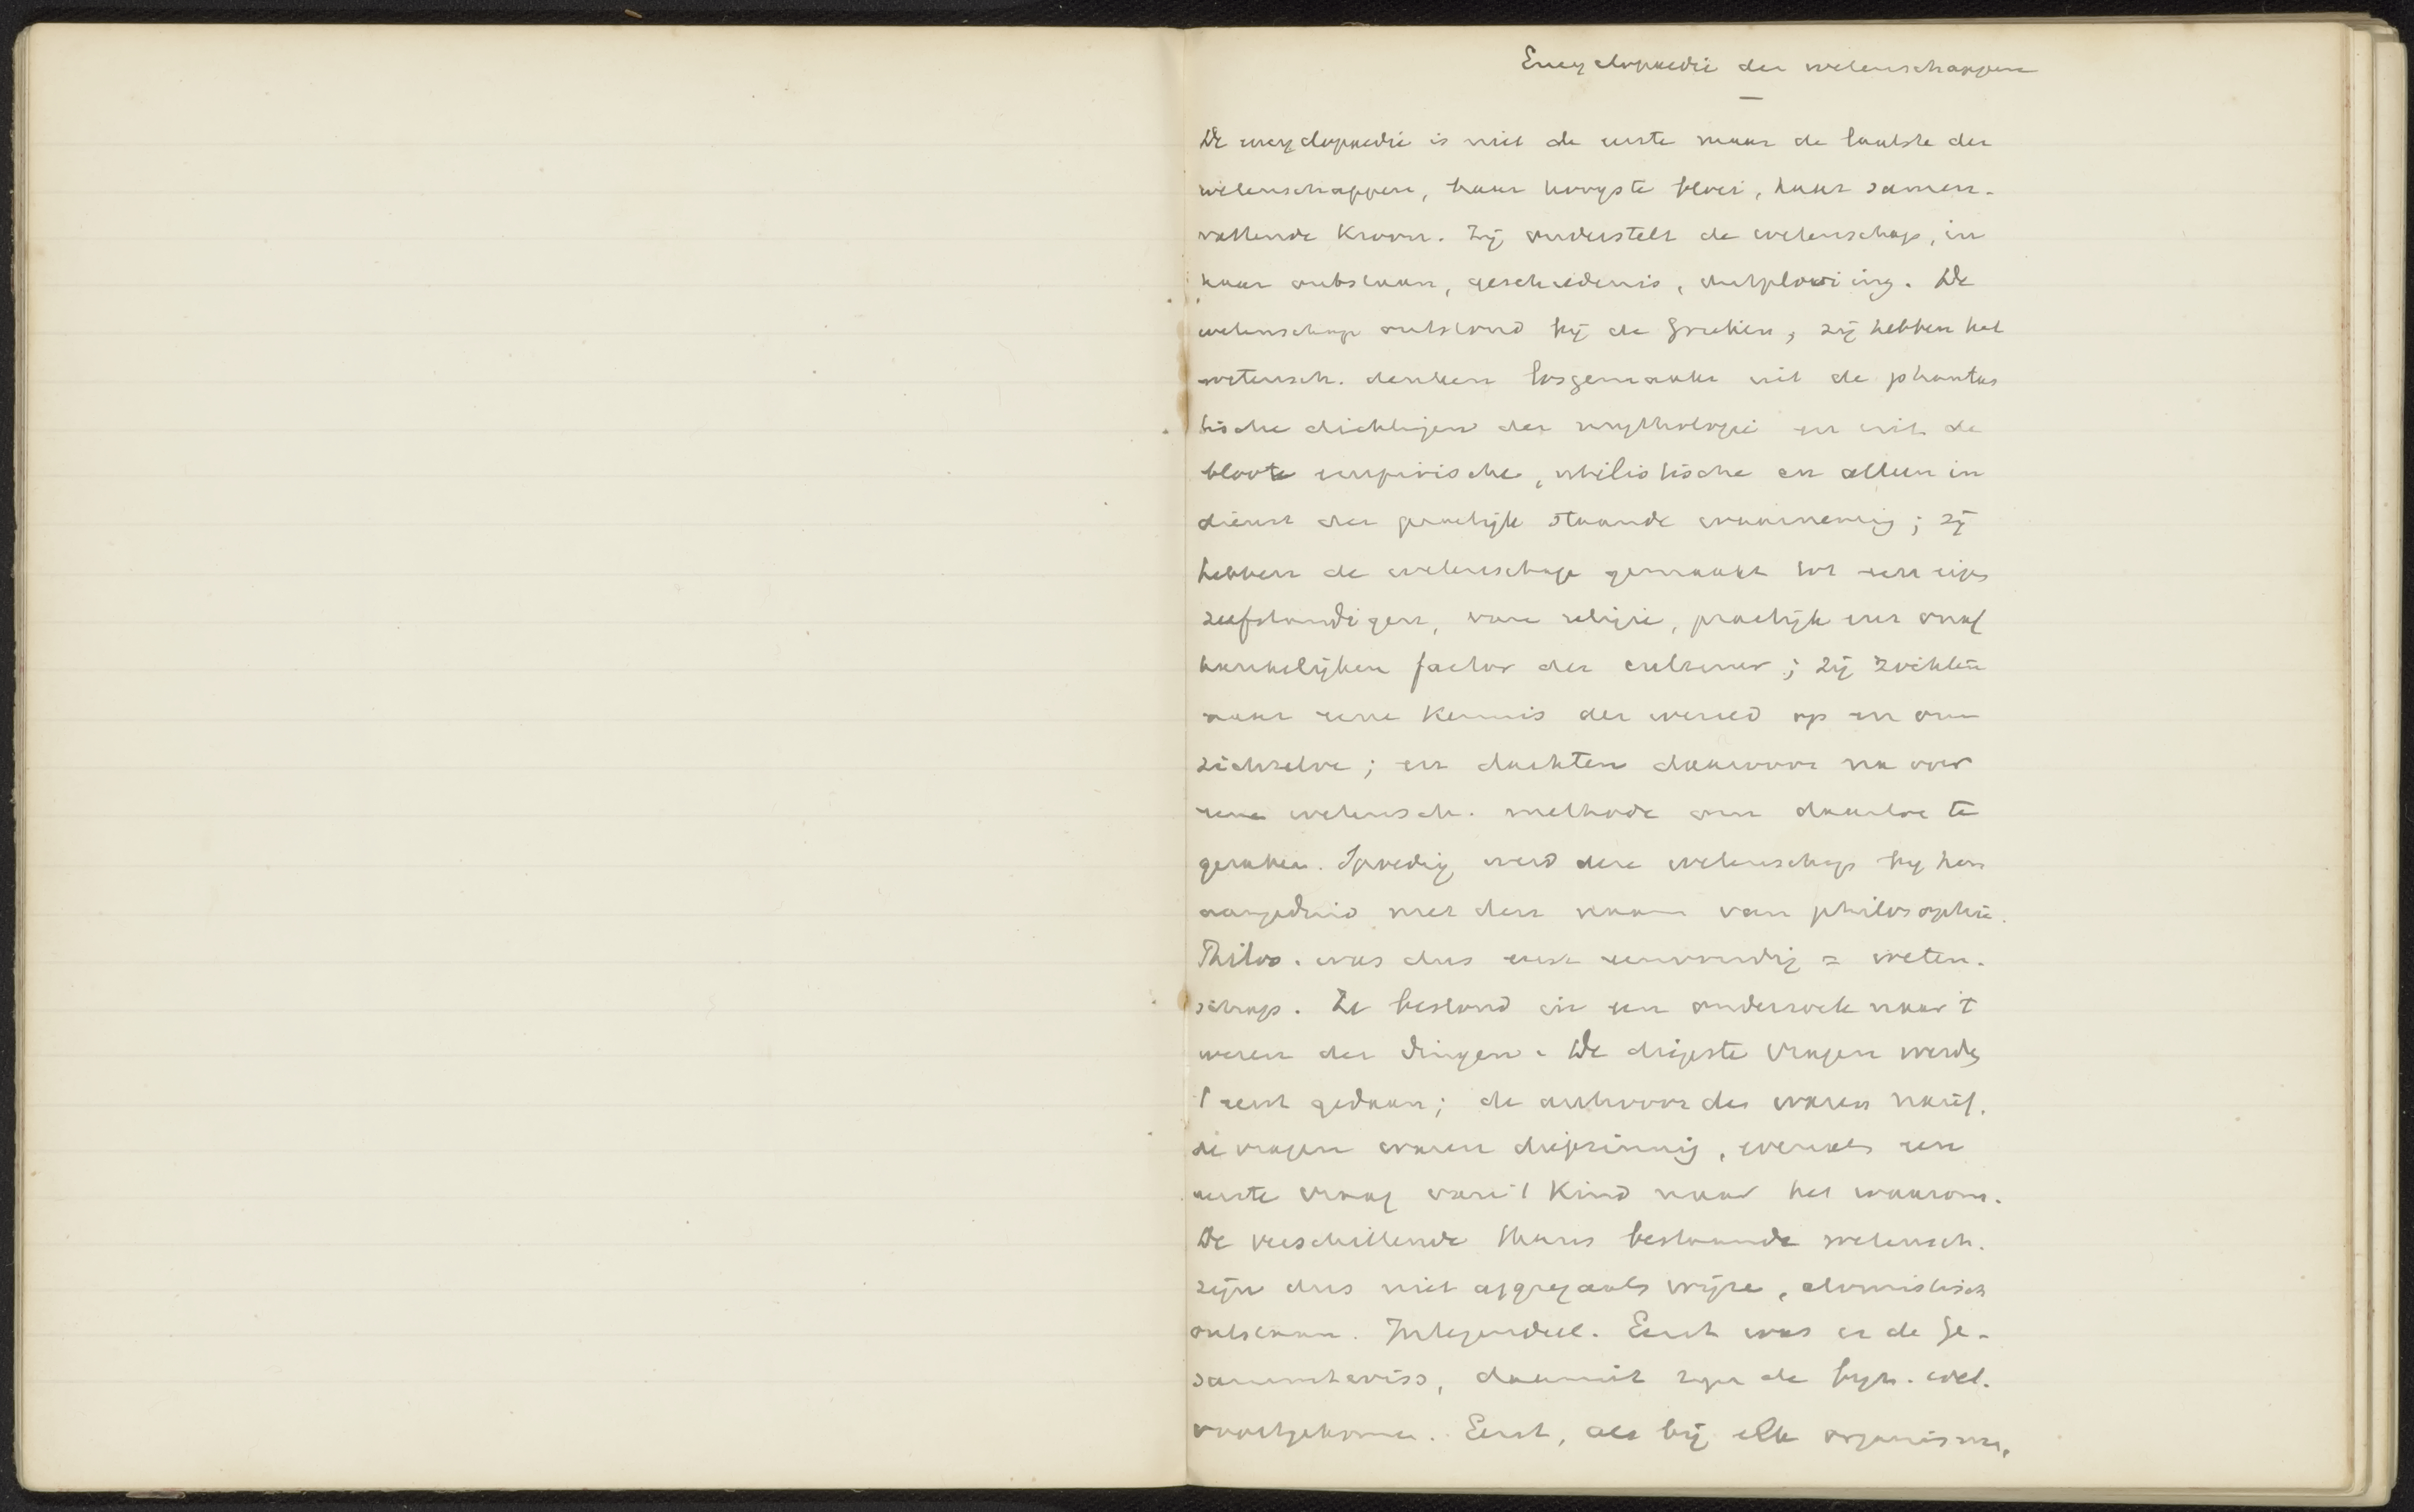 Encyclopaedie der wetenschappen
De encyclopaedie is niet de eerste maar de laatste der
wetenschappen, haar hoogste bloei, haar samen-
vattende kroon. Zij onderstelt de wetenschap, in
haar ontstaan, geschiedenis, ontplooiing. De
wetenschap ontstond bij de Grieken; zij hebben het
wetensch. denken losgemaakt uit de phantas
tische dichtingen der mythologie en uit de
bloote empirische, utilistische en alleen in
dienst der practijk staande waarneming; zij
hebben de wetenschap gemaakt tot een eigen
zelfstandigen, van religie, practijk enz onaf
hankelijken factor der cultuur; zij zochten
naar eene kennis der wereld op en om
zichzelve; en dachten daarvoor na over
eene wetensch. methode om daartoe te
geraken. Spoedig werd deze wetenschap bij hen
aangeduid met den naam van philosophie.
Philos. was dus eerst eenvoudig = weten-
schap. Ze bestond in een onderzoek naar 't
wezen der dingen. De diepste vragen werden
't eerst gedaan; de antwoorden waren naief,
de vragen waren diepzinnig, evenals een
eerste vraag van 't kind naar het waarom.
De verschillende thans bestaande wetensch.
zijn dus niet aggregaats wijze, atomistisch
ontstaan. Integendeel. Eerst was er de Ge-
sammtwiss, daaruit zijn de byz. wet.
voortgekomen. Eerst, als bij elk organisme,